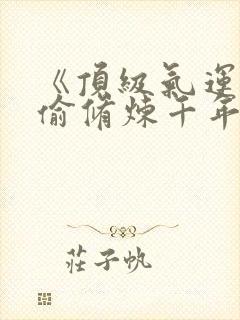 《頂級氣運
偷脩煉千年
莊子帆